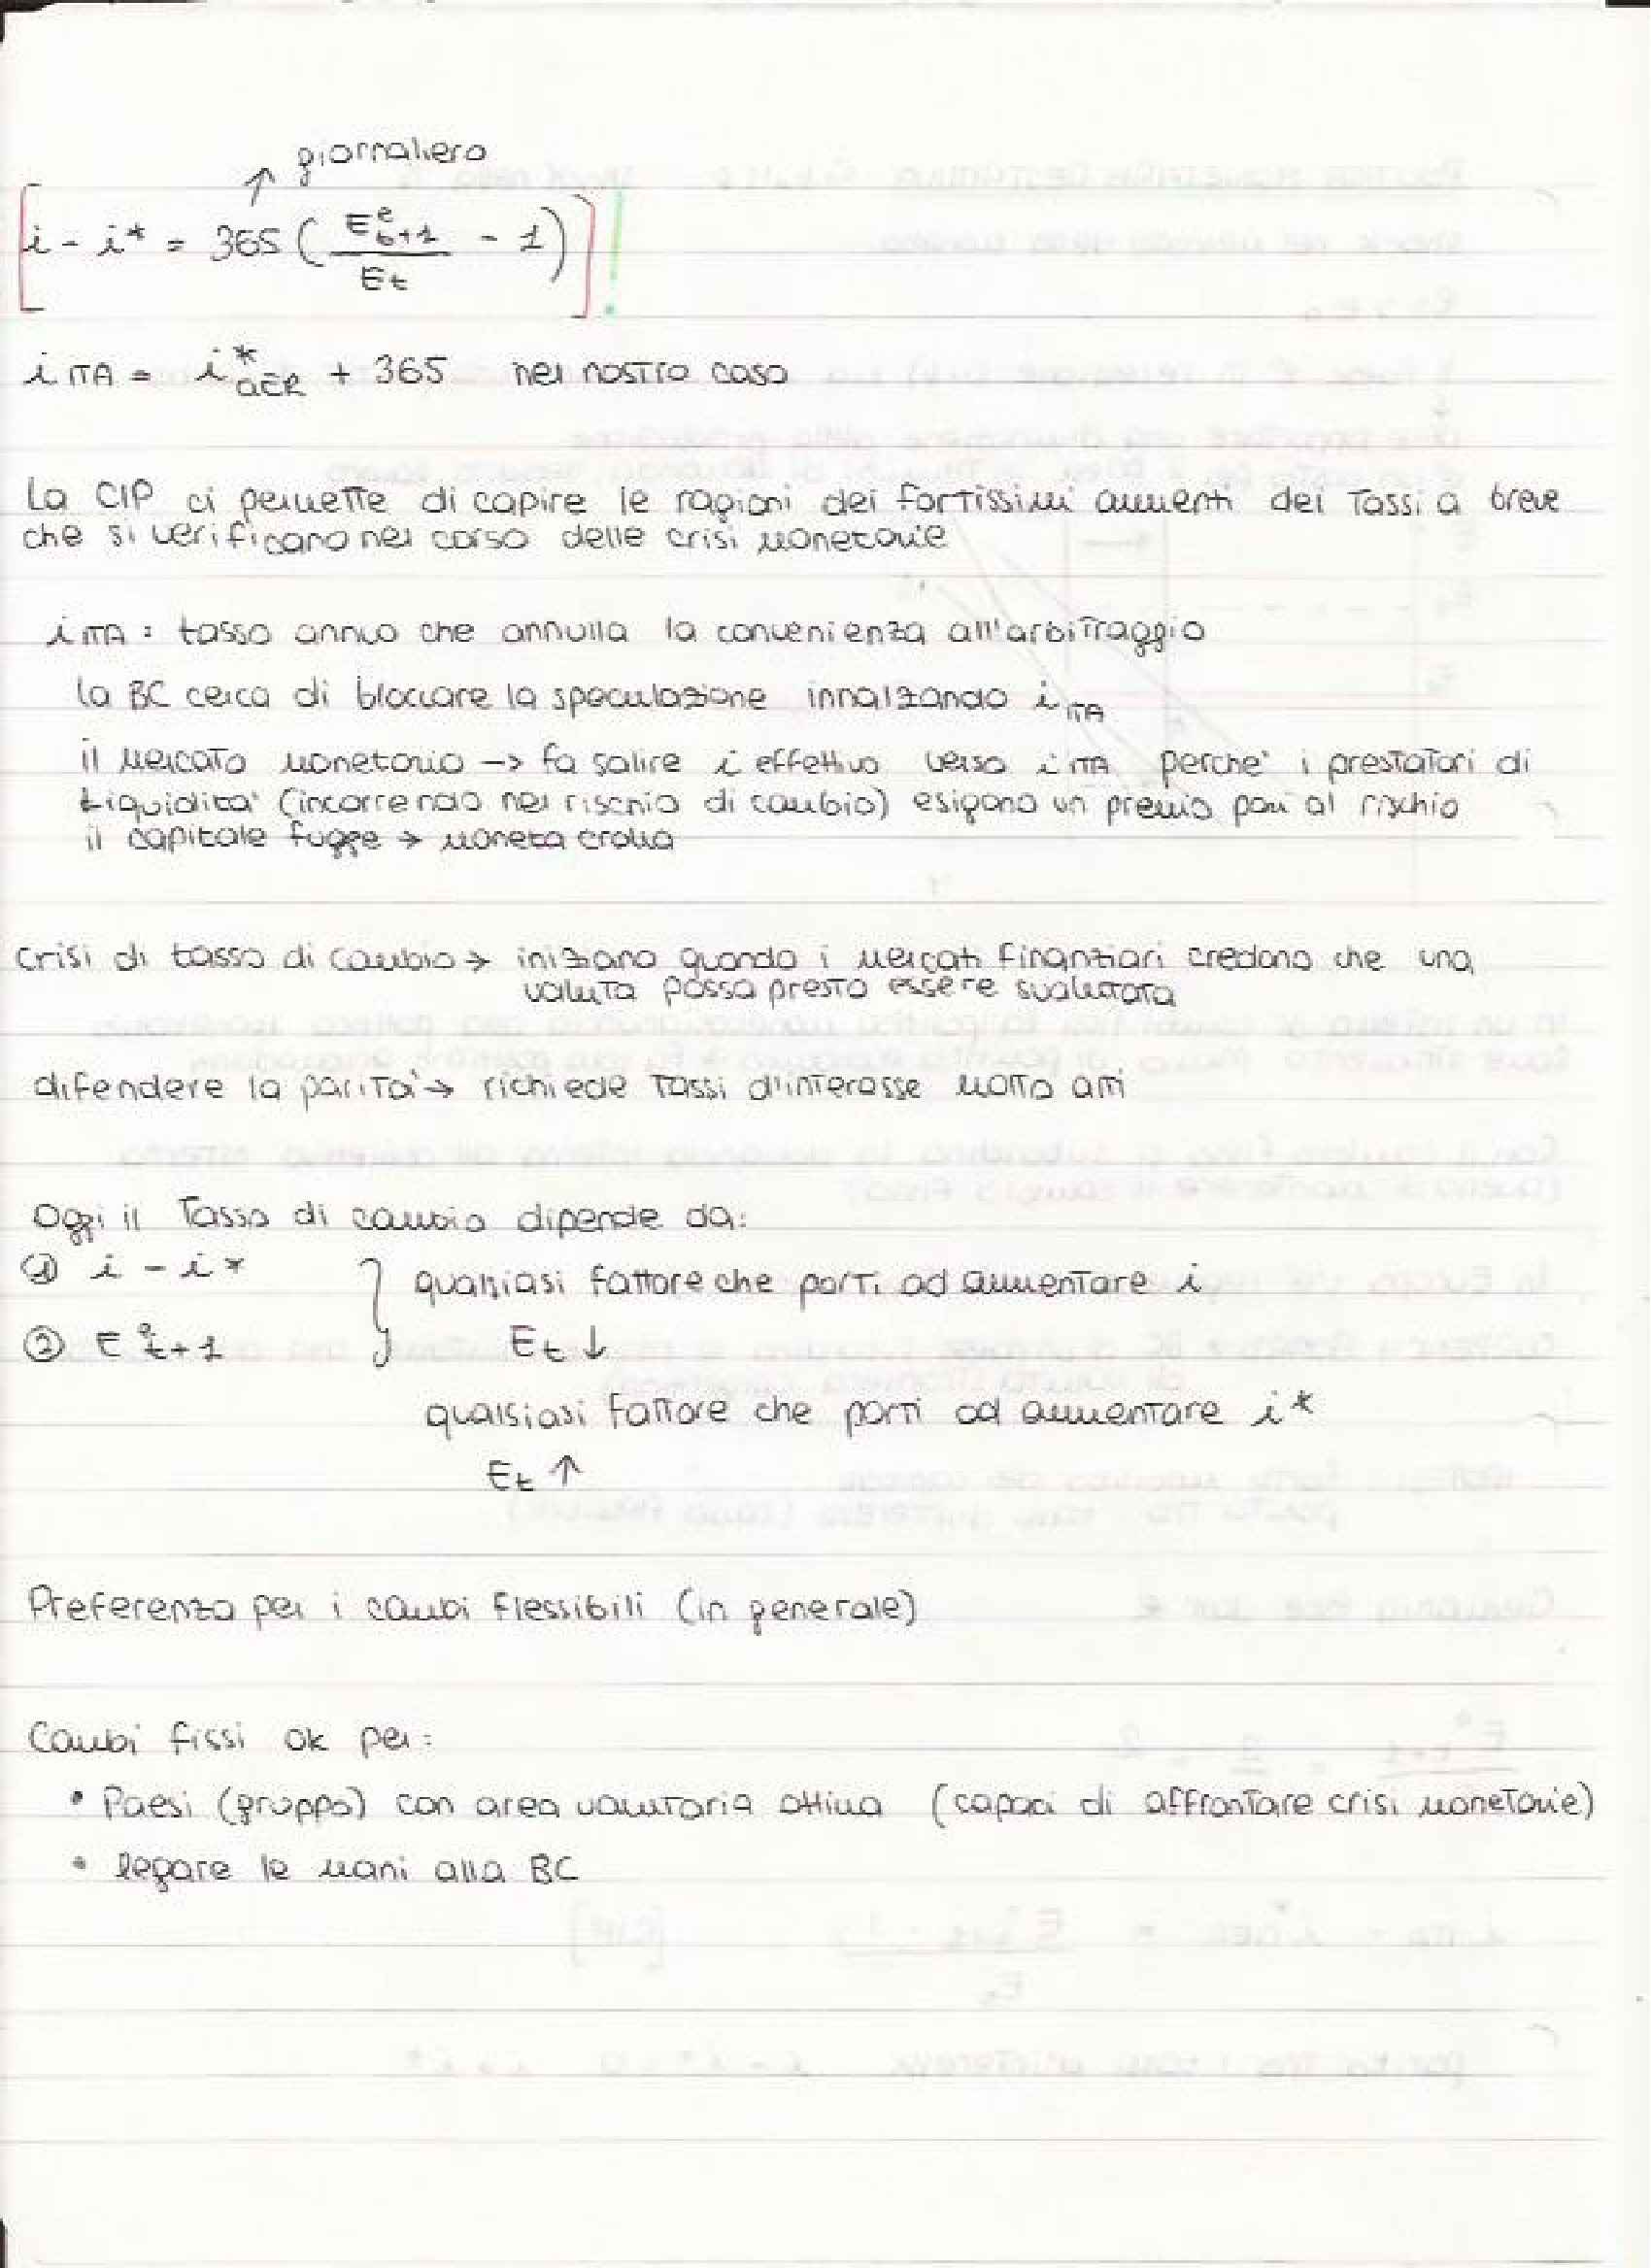 giornaliero
↑
[i - i* = 365 ( E^e_{t+1} / E_t - 1 ) ] !
i ITA = i*_{GER} + 365 nel nostro caso
La CIP ci permette di capire le ragioni dei fortissimi aumenti dei tassi a breve
che si verificano nel corso delle crisi monetarie
i ITA : tasso annuo che annulla la convenienza all'arbitraggio
la BC cerca di bloccare la speculazione innalzando i ITA
il mercato monetario -> fa salire i effettivo verso i ITA perche' i prestatori di
Liquidita' (incorrendo nel rischio di cambio) esigono un premio pari al rischio
il capitale fugge → moneta crolla
crisi di tasso di cambio → iniziano quando i mercati finanziari credono che una
valuta possa presto essere svalutata
difendere la parita' → richiede tassi d'interesse molto alti
Oggi il tasso di cambio dipende da:
① i - i* } qualsiasi fattore che porti ad aumentare i
② E^e_{t+1} E_t ↓
qualsiasi fattore che porti ad aumentare i*
E_t ↑
Preferenza per i cambi flessibili (in generale)
Cambi fissi ok per:
• Paesi (gruppo) con area valutaria ottima (capaci di affrontare crisi monetarie)
• legare le mani alla BC